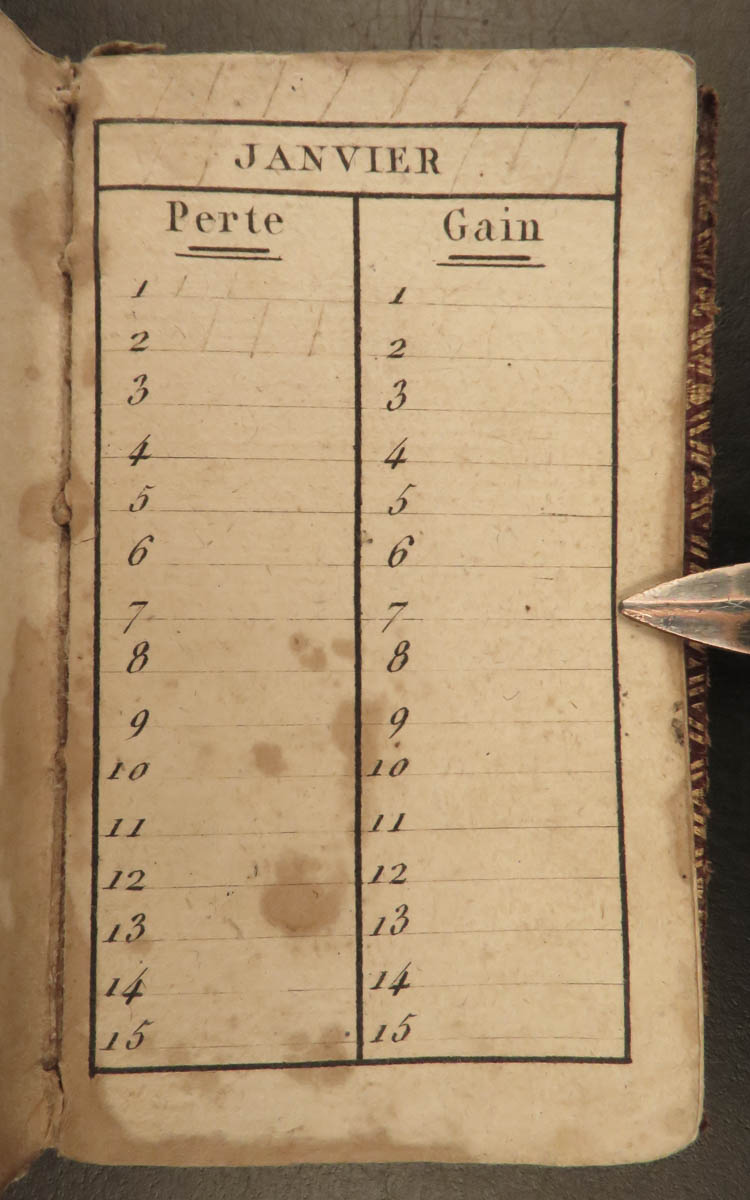 JANVIER
Perte Gain
1 1
2 2
3 3
4 4
5 5
6 6
7 7
8 8
9 9
10 10
11 11
12 12
13 13
14 14
15 15